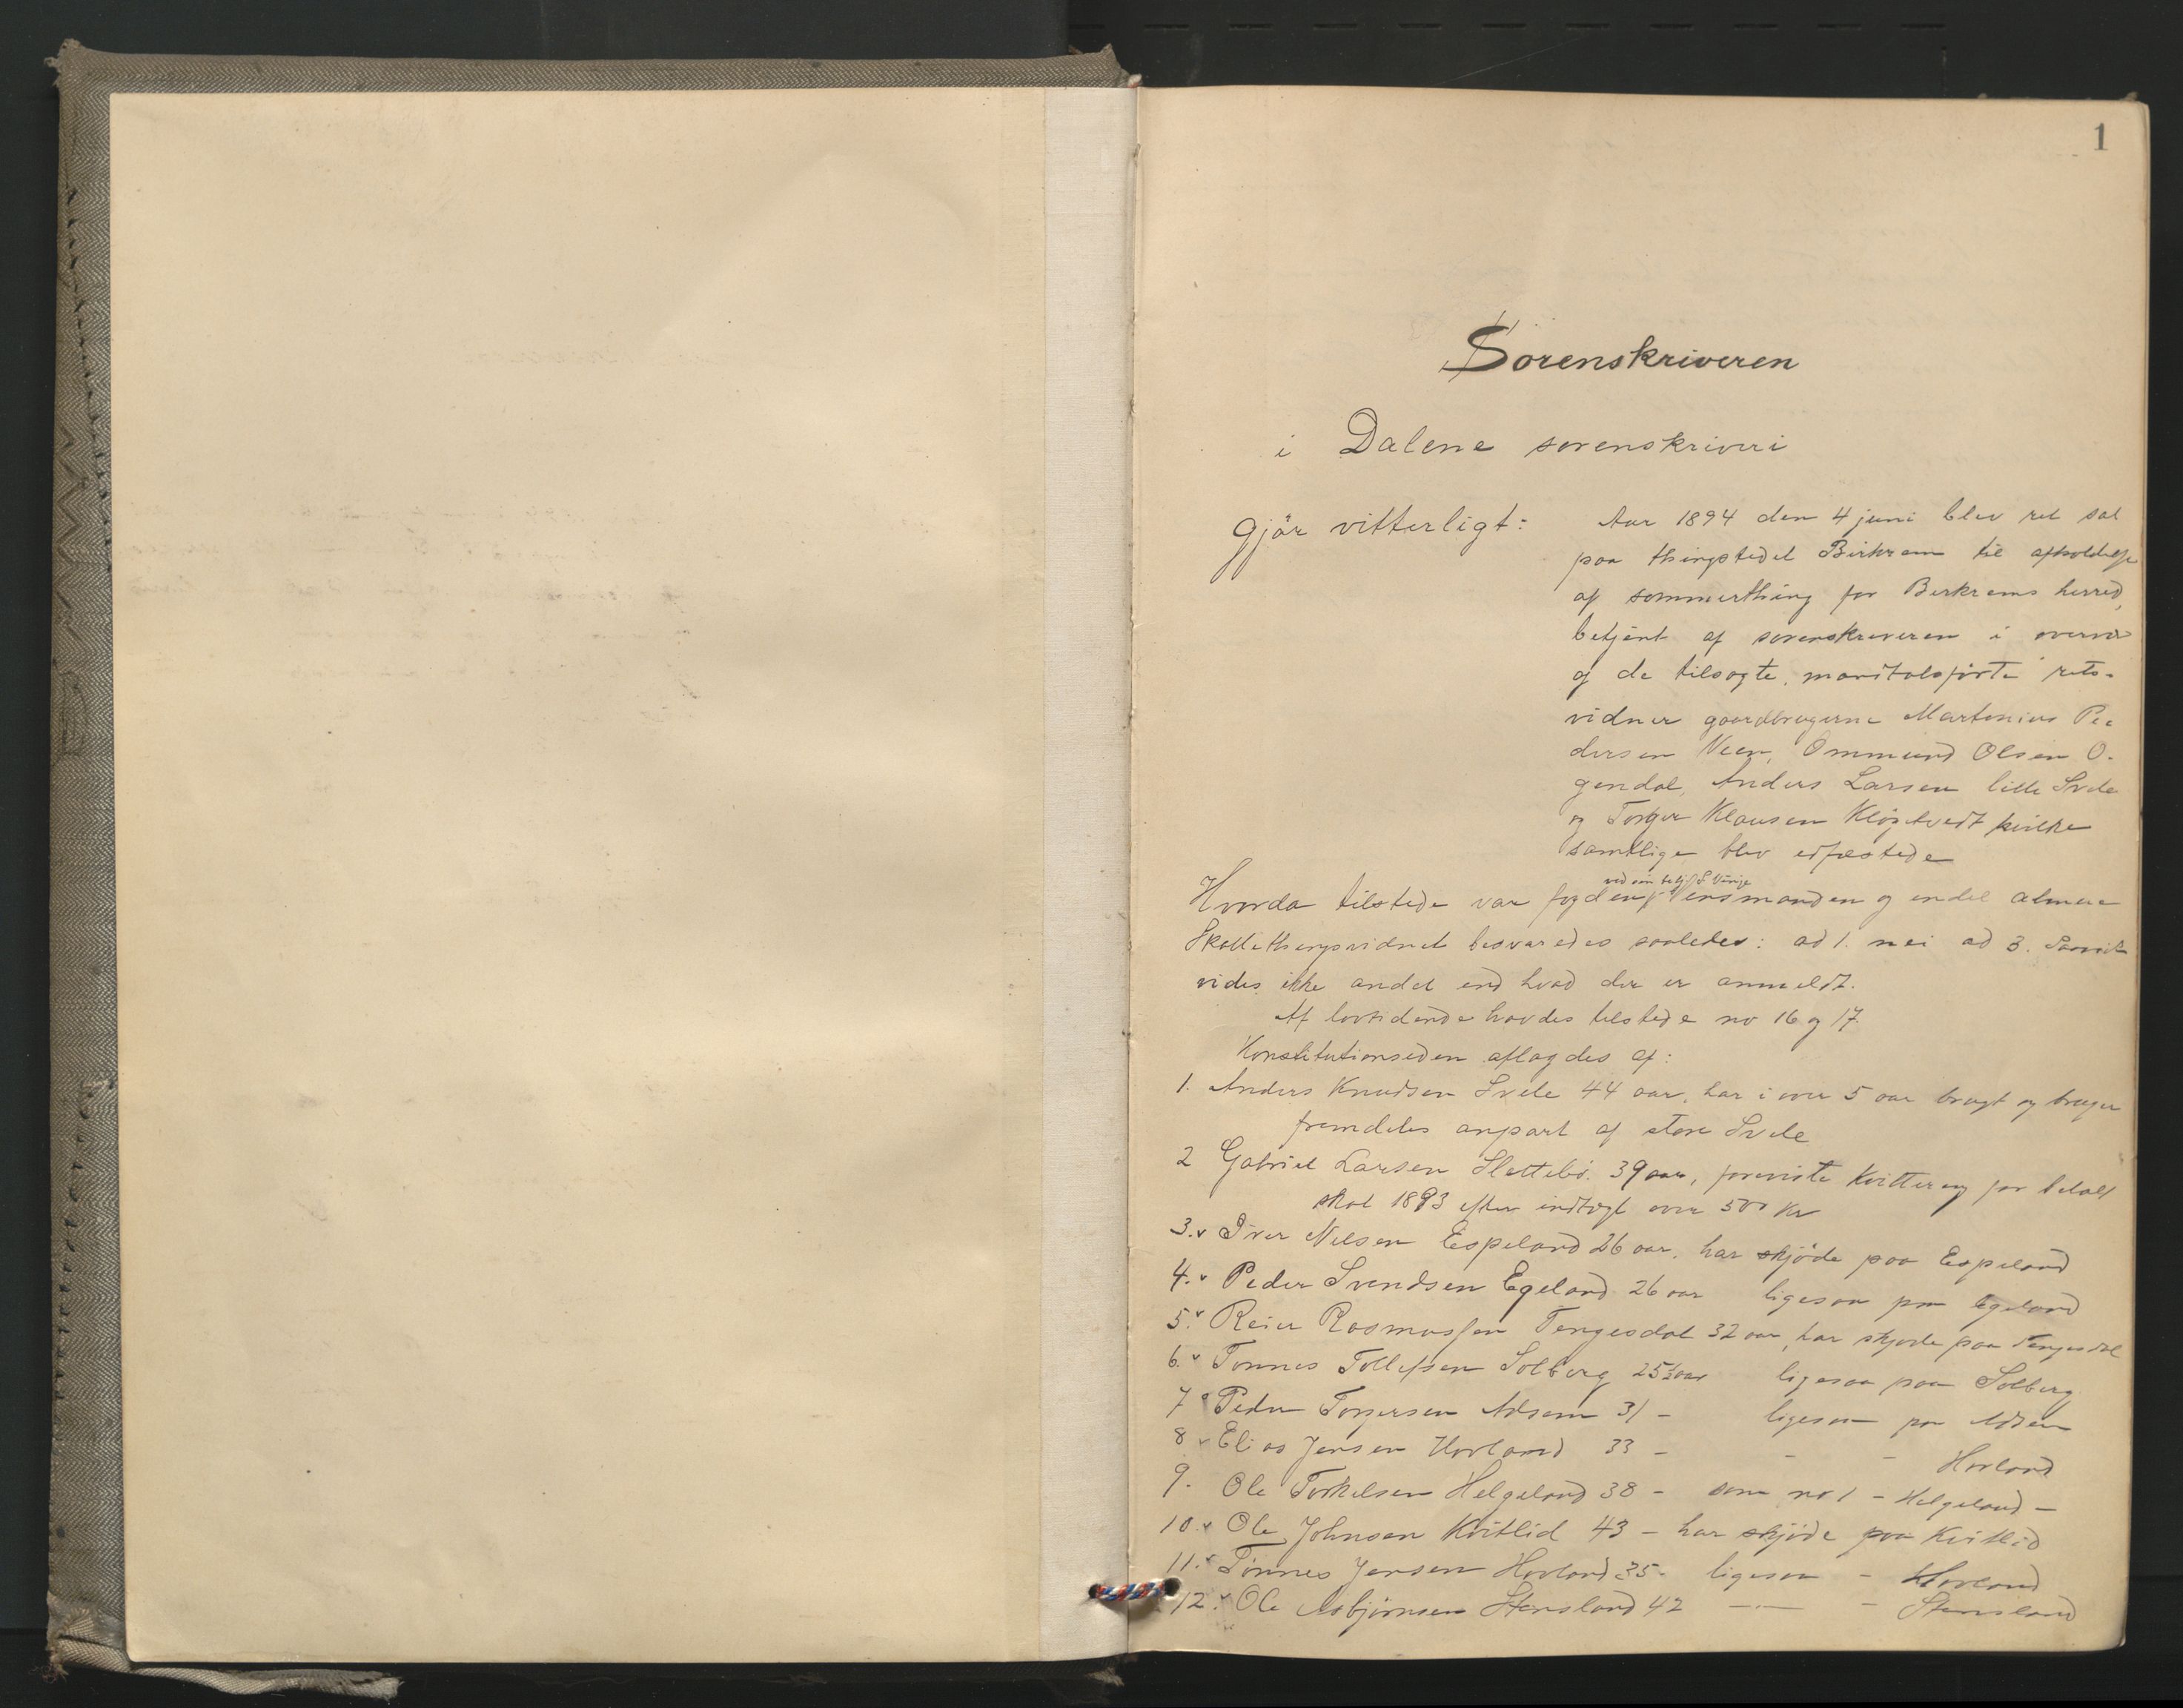 1
Sorenskriveren
i Dalene sorenskriveri
gjør vitterligt:
Aar 1894 den 4 juni blev ret sat
paa thingstedet Birkrem til afholdelse
af sommerthing for Berkrems herred,
betjent af sorenskriveren i overvær
af de tilsagte, mandtalsførte rets-
vidner gaardbrugerne Martinius Pe-
dersen Veen, Ommund Olsen O-
gendal, Anders Larsen lille Svele
og Torger Klausen Kløgetvedt hvilke
samtlige blev edfæstede
ved sin betj
Hvorda tilstede var fogden lensmanden og endel almue
Skattethingsvidnet besvaredes saaledes: ad 1. nei ad 3.
vides ikke andet end hvad der er anmeldt.
Af lovtidende havdes tilstede no 16 og 17.
Konstitutionseden aflagdes af:
1. Anders Knudsen Svele 44 aar, har i over 5 aar brugt og bruger
fremdeles anpart af store Svele
2 Gabriel Larsen Slettebø. 39 aar, foreviste kvittering for betalt
skat 1893 efter indtægt over 500 Kr
3.v Iver Nelsen Espeland 26 aar. har skjøde paa Espeland
4.v Peder Svendsen Egeland 26 aar ligesaa paa Egeland
5.v Reier Rasmussen Tengesdal 32 aar, har skjøde paa Tengesdal
6.v Tønnes Tollefsen Solberg 25½ aar ligesaa paa Solberg
7 v Peder Torgersen Adsem 31 - ligesaa paa Adsem
8 v Elias Jensen Hovland 33 - - - Hovland
9. Ole Torkelsen Helgeland 38 - som no 1 - Helgeland -
10.v Ole Johnsen Kvitlid 43 - har skjøde paa Kvitlid
11.v Tønnes Jensen Hovland 35 - ligesaa - Hovland
12.v Ole Asbjørnsen Stensland 42 - - - Stensland